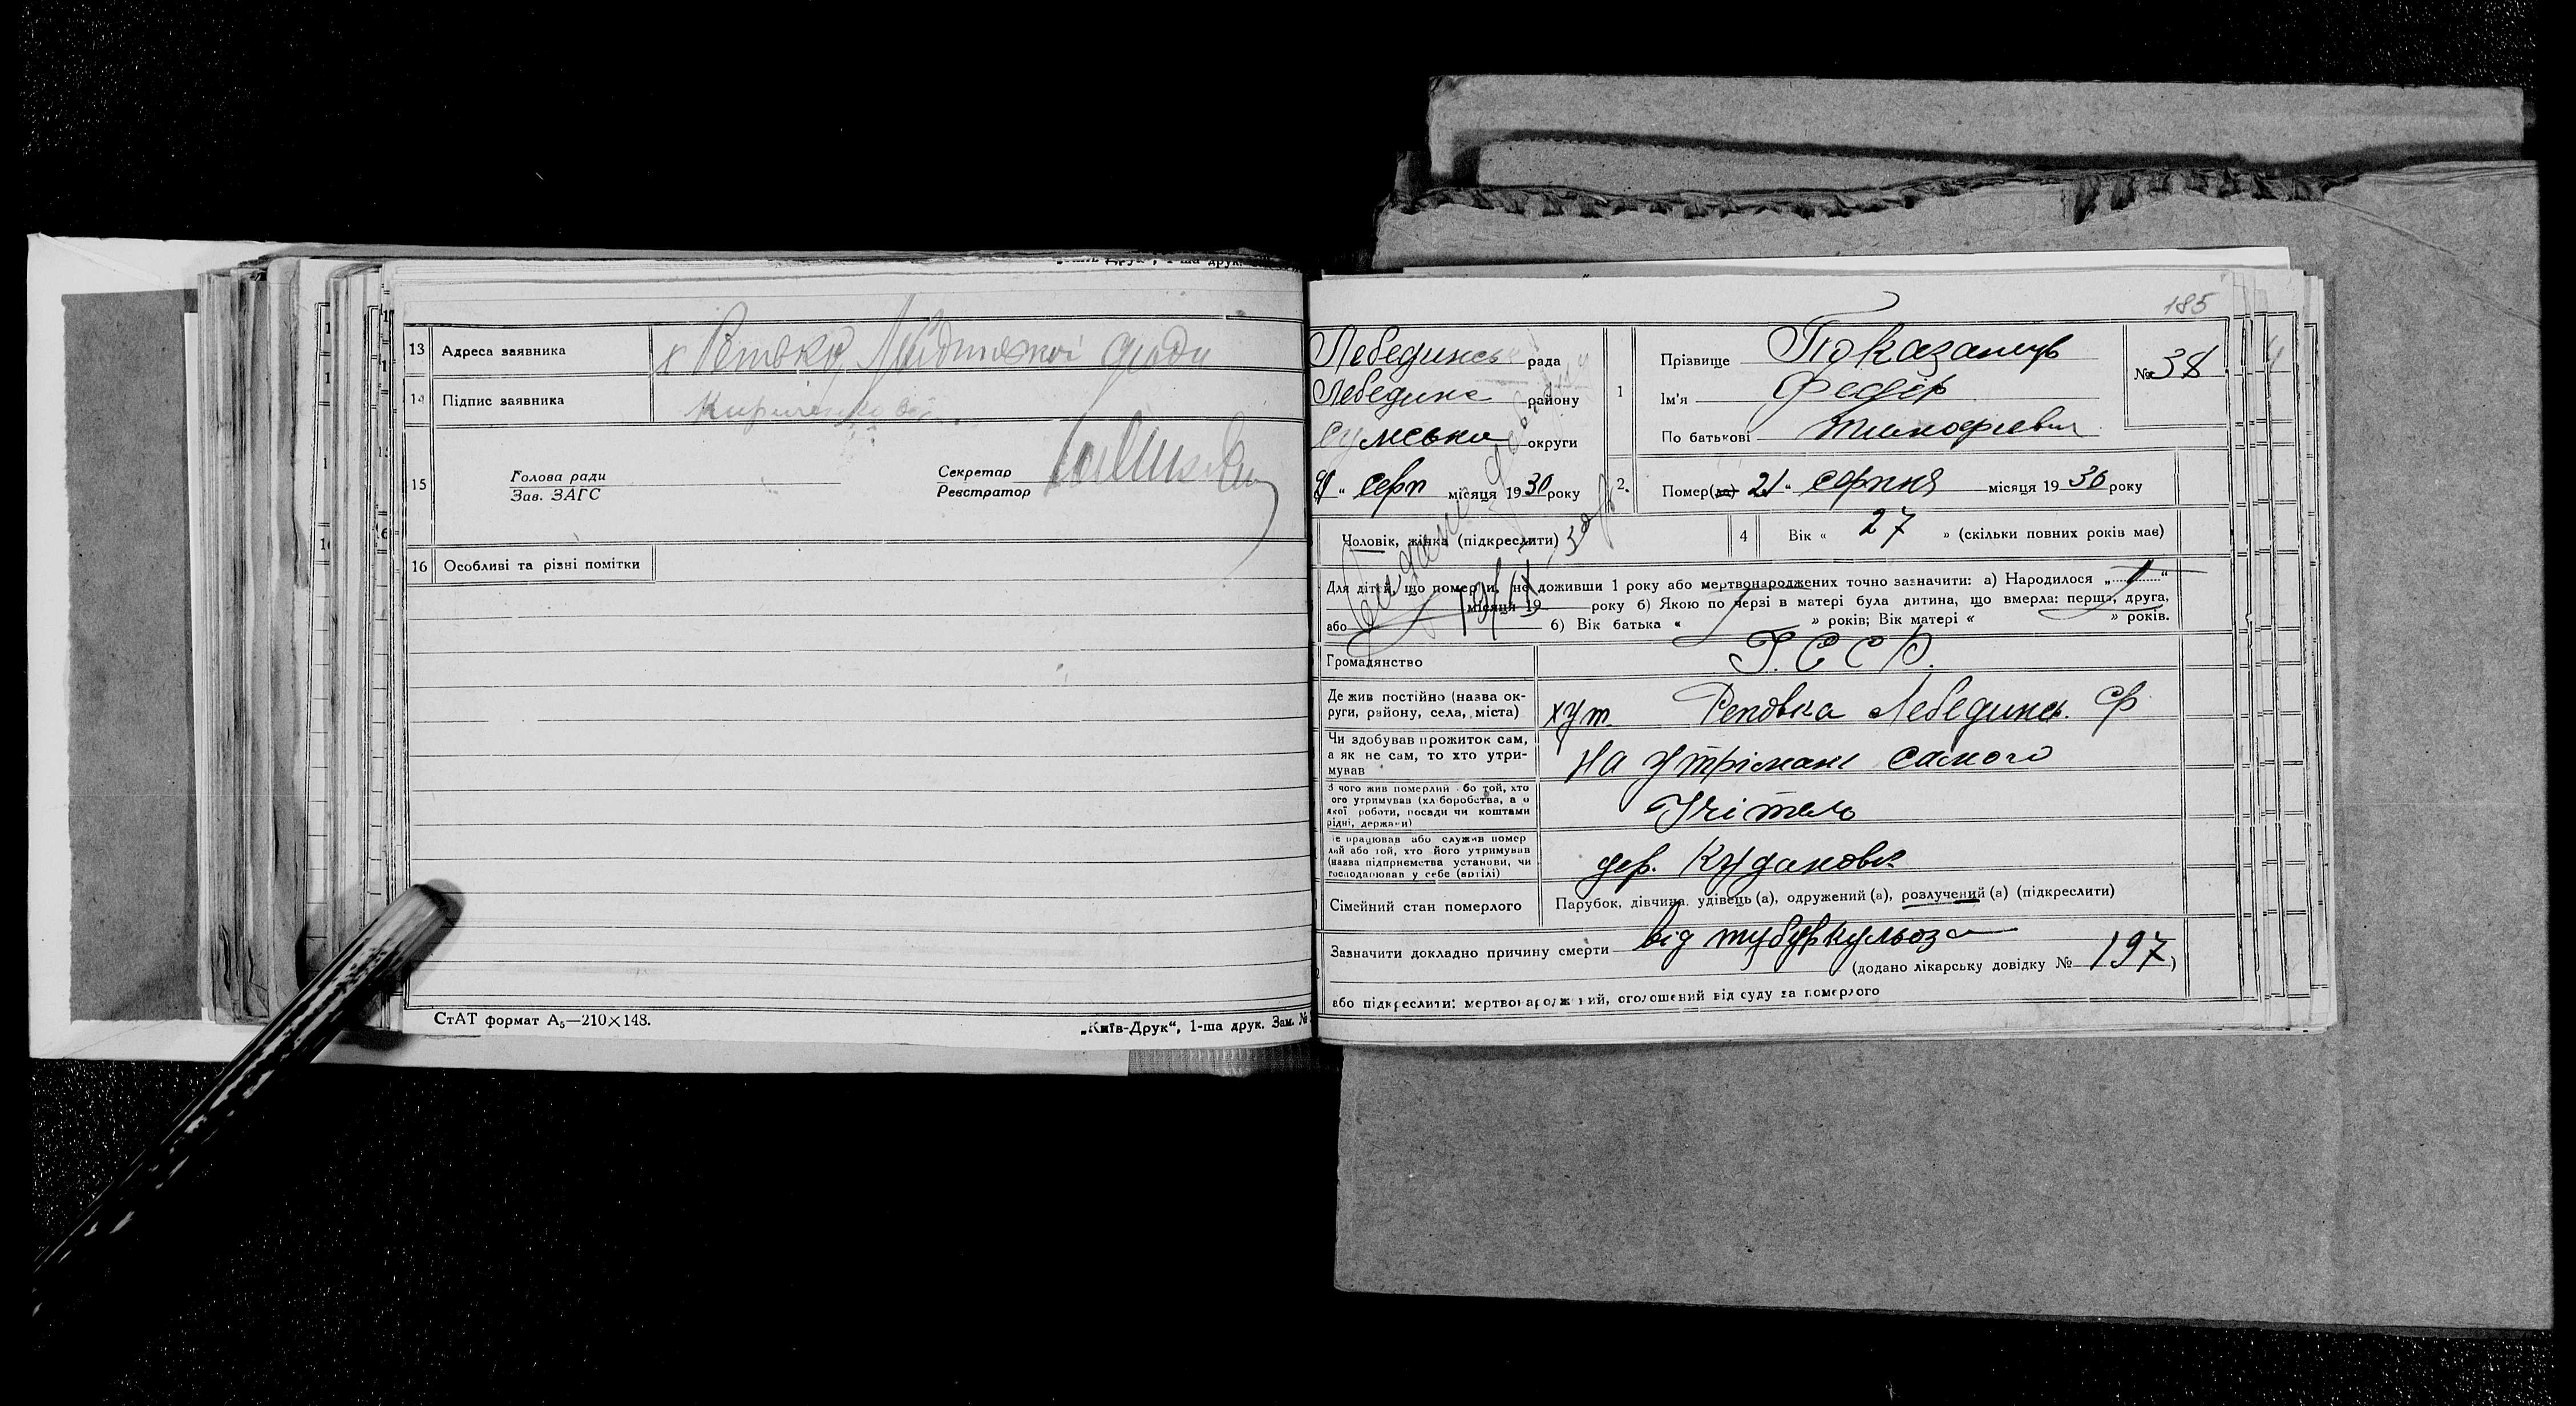 13 Адреса заявника
14 Підпис заявника
15 Голова ради
Зав. ЗАГС
Секретар
Реєстратор
16 Особливі та різні помітки
СтАТ формат А₅—210×148.
„Київ-Друк“, 1-ша друк. Зам. №
185
Лебединсь рада
Лебединс району
Сумська округи
" серп місяця 1930 року
1 Прізвище Показанець
Ім'я Федір
По батькові Тимофієвич
№ 38
2. Помер(ла) 21 " серпня місяця 1930 року
Чоловік, жінка (підкреслити)
4 Вік « 27 » (скільки повних років має)
Для дітей, що померли, не доживши 1 року або мертвонароджених точно зазначити: а) Народилося „ “
місяця 19 року б) Якою по черзі в матері була дитина, що вмерла: перша, друга,
або б) Вік батька « » років; Вік матері « » років.
Громадянство
Р.С.С.Р.
Де жив постійно (назва ок-
руги, району, села, міста)
хут Реповка Лебединсь. СР
Чи здобував прожиток сам,
а як не сам, то хто утри-
мував
На утрімані самого
З чого жив померлий або той, хто
його утримував (хліборобства, а о
якої роботи, посади чи коштами
рідні, держави)
Учітель
Де працював або служив помер
лий або той, хто його утримував
(назва підприємства установи, чи
господарював у себе (артілі)
дер. Кудановк
Сімейний стан померлого
Парубок, дівчина, удівець (а), одружений (а), розлучений (а) (підкреслити)
Зазначити докладно причину смерти від туберкульоза
(додано лікарську довідку № 197)
або підкреслити: мертвонароджений, оголошений від суду за померлого